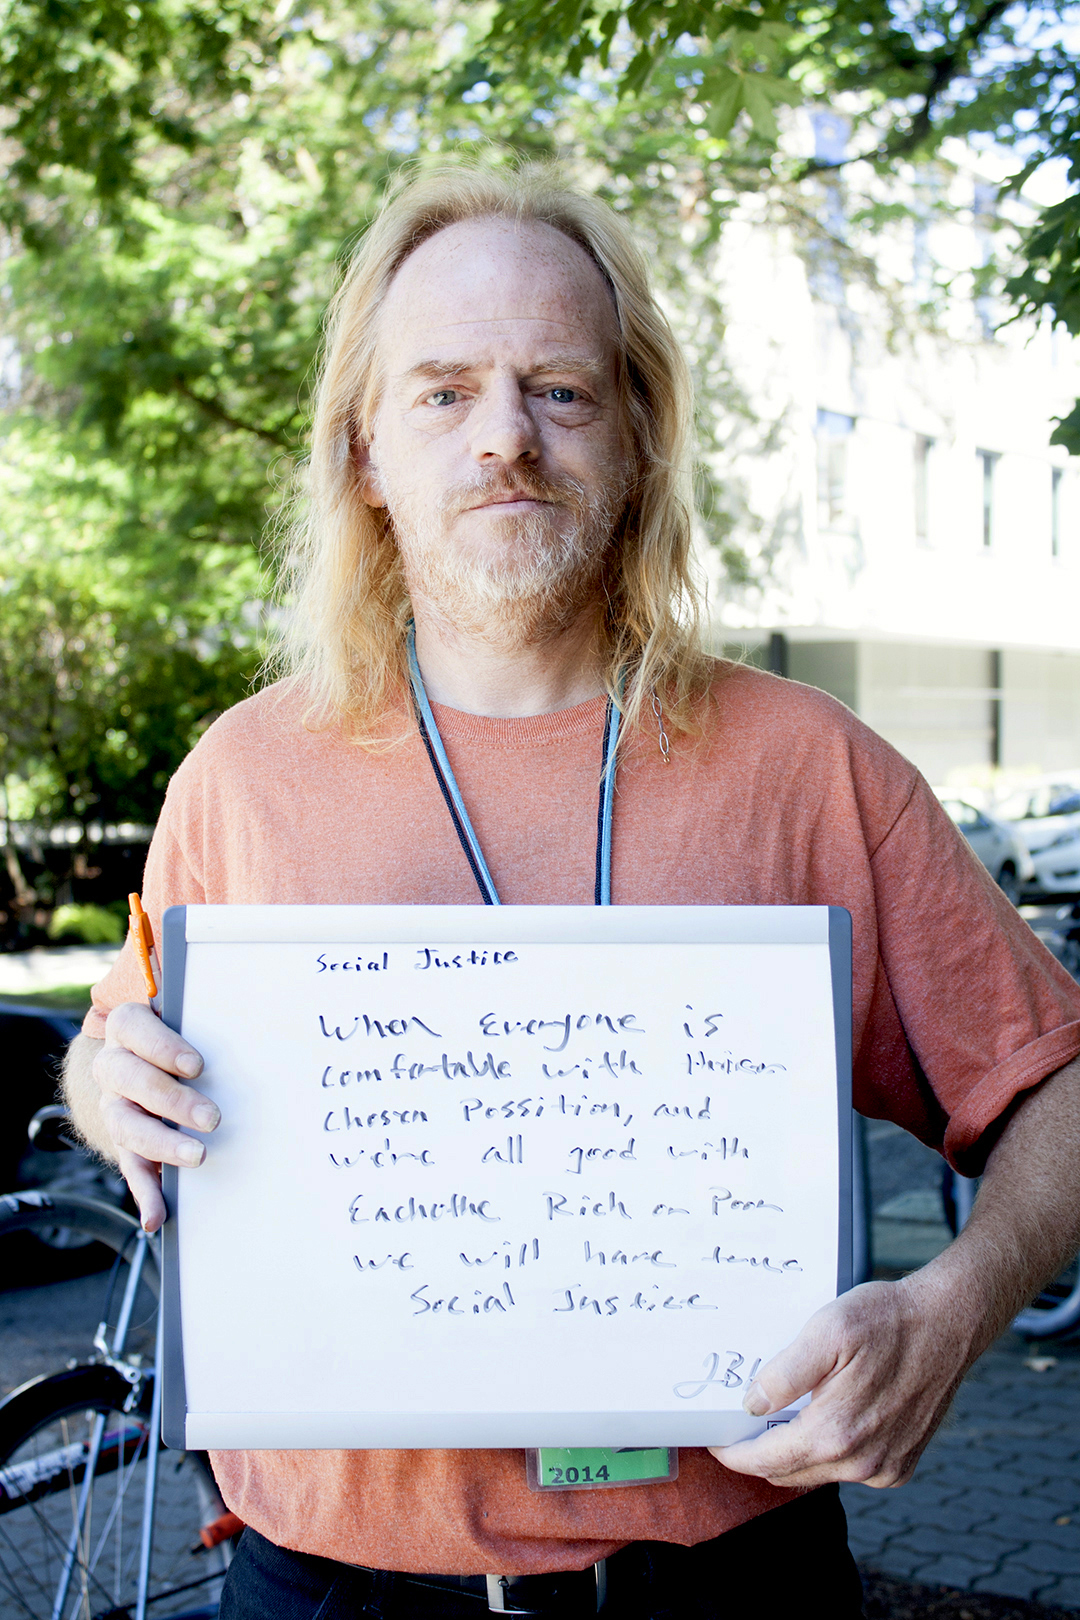 Social Justice
When Everyone is
comfortable with
Chosen Possition, and
we're all good with
Eachothe Rich or Poor
we will have
Social Justice
JBL
2014